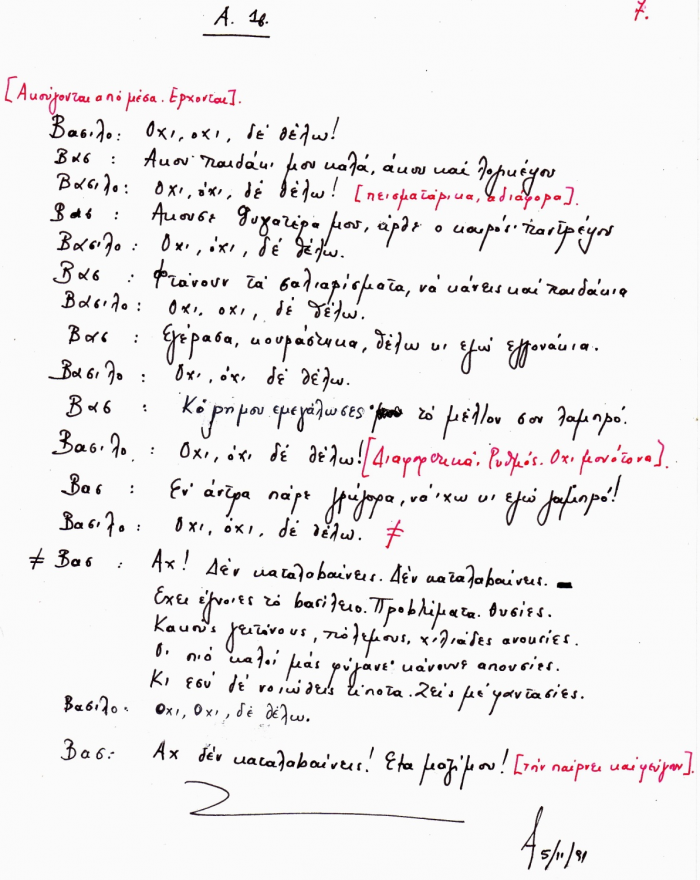 Α. 1β. 7.
[Ακούγονται από μέσα. Έρχονται].
Βασιλο: Όχι, όχι, δέ θέλω!
Βασ : Άκου παιδάκι μου καλά, άκου καί λογικέψου
Βασιλο: Όχι, όχι, δέ θέλω! [πεισματάρικα, αδιάφορα].
Βασ : Άκουσε θυγατέρα μου, άρθε ο καιρός· παντρέψου
Βασιλο: Όχι, όχι, δέ θέλω.
Βασ : Φτάνουν τά σαλιαρίσματα, νά κάνεις καί παιδάκια
Βασιλο: Όχι, όχι, δέ θέλω.
Βασ : Εγέρασα, κουράστηκα, θέλω κι εγώ εγγονάκια.
Βασιλο : Όχι, όχι δέ θέλω.
Βασ : Κόρη μου εμεγάλωσες τό μέλλον σου λαμπρό.
Βασιλο : Όχι, όχι δέ θέλω! [Διαφορετικά. Ρυθμός. Όχι μονότονα].
Βασ : Έν' άντρα πάρε γρήγορα, νά 'χω κι εγώ γαμπρό!
Βασιλο : Όχι, όχι, δέ θέλω. ≠
≠ Βασ : Αχ! Δέν καταλαβαίνεις. Δέν καταλαβαίνεις.
Έχει έγνοιες τό βασίλειο. Προβλήματα. Θυσίες.
Κακούς γειτόνους, πόλεμους, χιλιάδες ανουσίες.
Οι πιό καλοί μάς φύγανε· κάνουνε απουσίες.
Κι εσύ δέ νοιώθεις τίποτα. Ζείς μέ φαντασίες.
Βασιλο: Όχι, Όχι, δέ θέλω.
Βασ: Αχ δέν καταλαβαίνεις! Έλα μαζί μου! [τήν παίρνει καί φεύγουν].
5/11/91